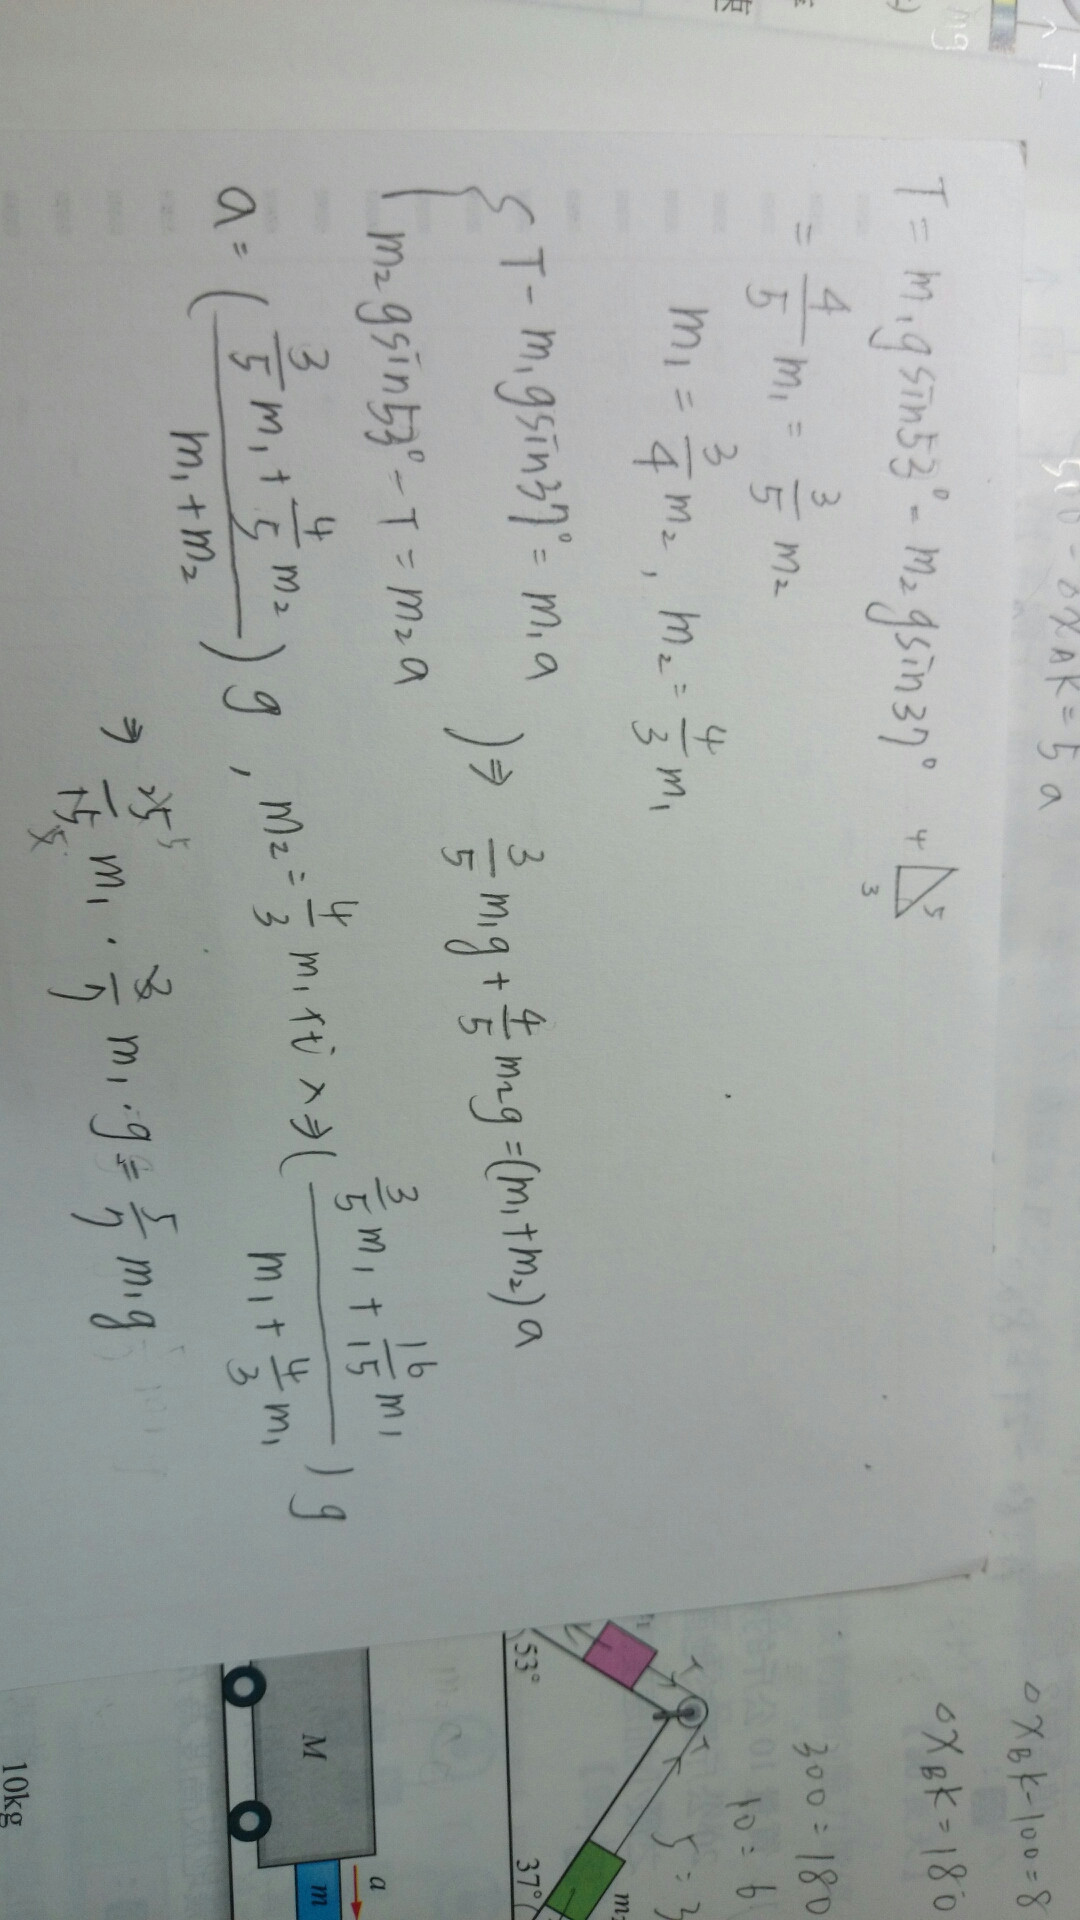 T = m₁g sin53° = m₂g sin37°
4 5 3
= 4/5 m₁ = 3/5 m₂
m₁ = 3/4 m₂, m₂ = 4/3 m₁
{ T - m₁g sin37° = m₁a
m₂g sin53° - T = m₂a
) ⇒ 3/5 m₁g + 4/5 m₂g = (m₁+m₂)a
a = ( (3/5 m₁ + 4/5 m₂) / (m₁+m₂) ) g, m₂ = 4/3 m₁ 代入 ⇒ ( (3/5 m₁ + 16/15 m₁) / (m₁ + 4/3 m₁) ) g
⇒ 25/15 m₁ · 3/7 m₁ · g = 5/7 m₁g
XAK = 5a
XBK-100=8
XBK=180
300=180
10=6
5=3
53°
37°
M
m
a
10kg
T
mg